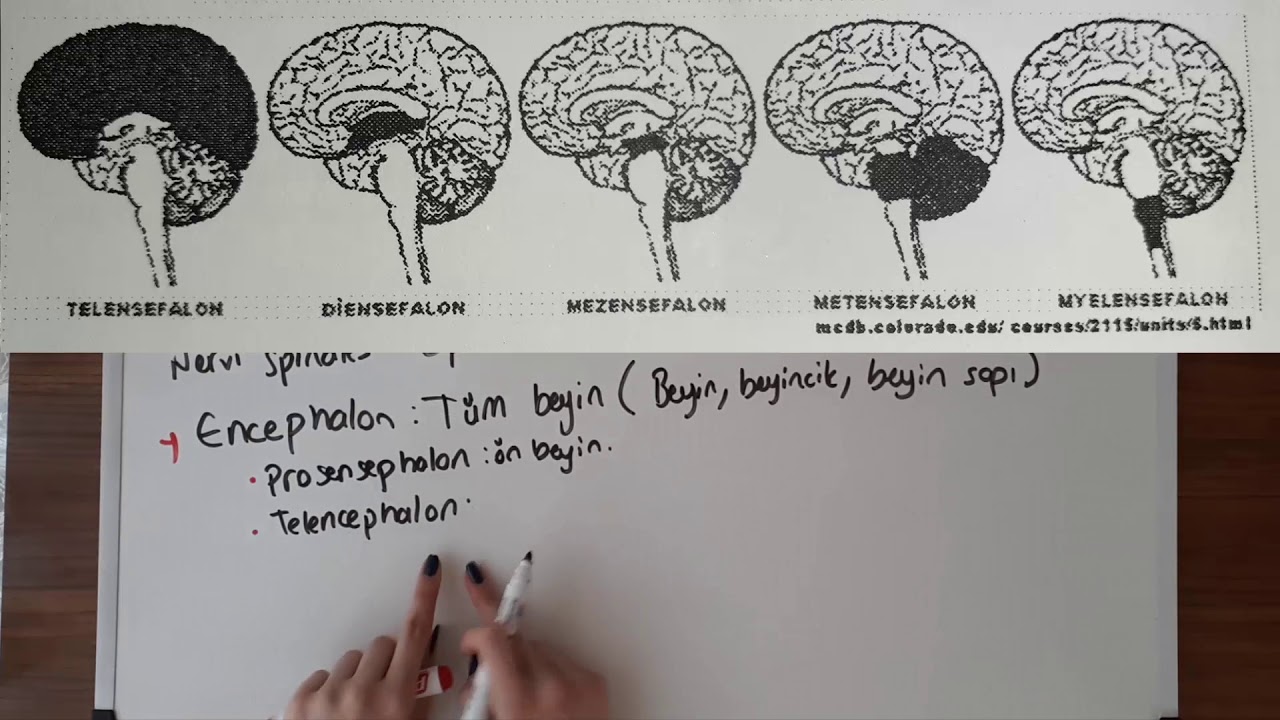 TELENSEFALON
DİENSEFALON
MEZENSEFALON
METENSEFALON
MYELENSEFALON
mcdb.colorado.edu/ courses/2115/units/5.html
Nervi spinal
Encephalon : Tüm beyin ( Beyin, beyincik, beyin sapı )
Prosensephalon : ön beyin.
Telencephalon